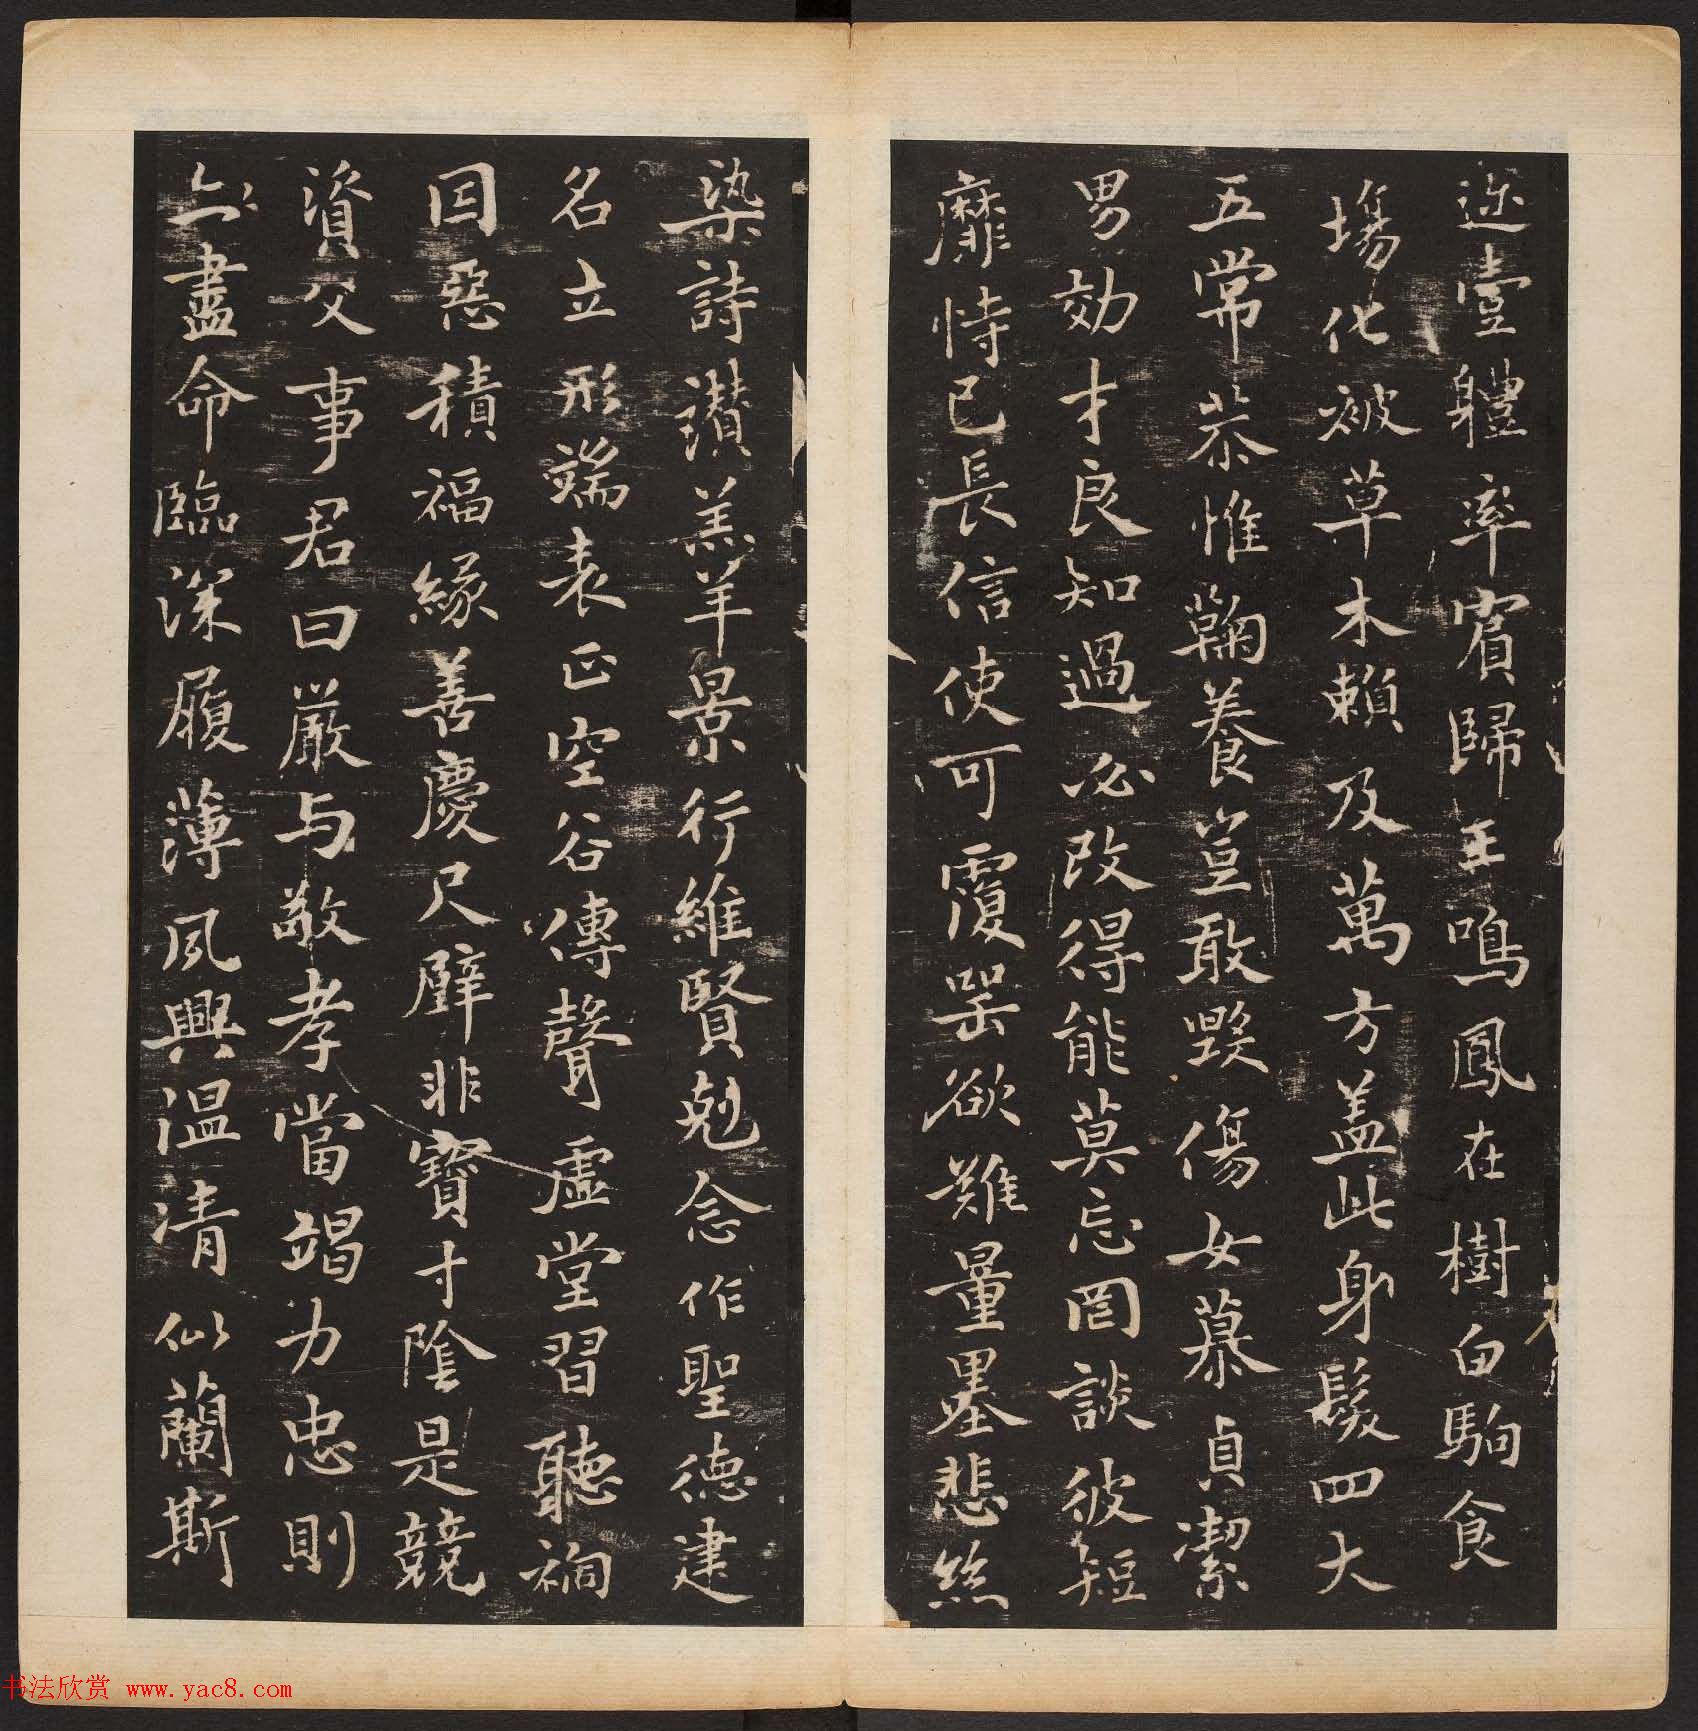 迩壹體率賓歸王鳴鳳在樹白駒食
場化被草木賴及萬方盖此身髮四大
五常恭惟鞠養豈敢毀傷女慕貞潔
男効才良知過必改得能莫忘罔談彼短
靡恃己長信使可覆器欲難量墨悲絲
染詩讚羔羊景行維賢剋念作聖德建
名立形端表正空谷傳聲虛堂習聽禍
因惡積福緣善慶尺璧非寶寸陰是競
資父事君曰嚴与敬孝當竭力忠則
盡命臨深履薄夙興温凊似蘭斯
书法欣赏 www.yac8.com